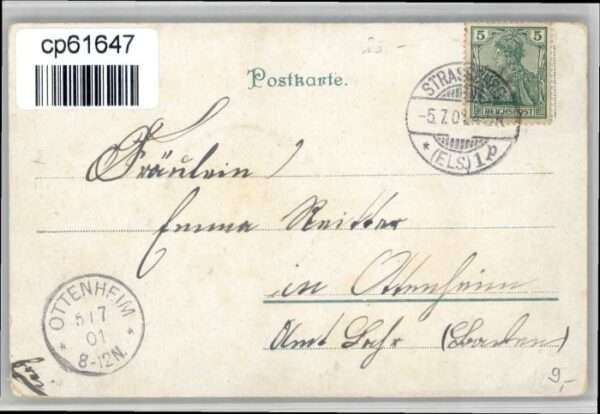 cp61647
Postkarte.
5 5
REICHSPOST
STRASSBURG
-5.7.01
* (ELS) 1 p
Fräulein
Emma Reitter
in Ottenheim
Amt Lahr (Baden)
OTTENHEIM
5 7
01
8-12N.
9,-